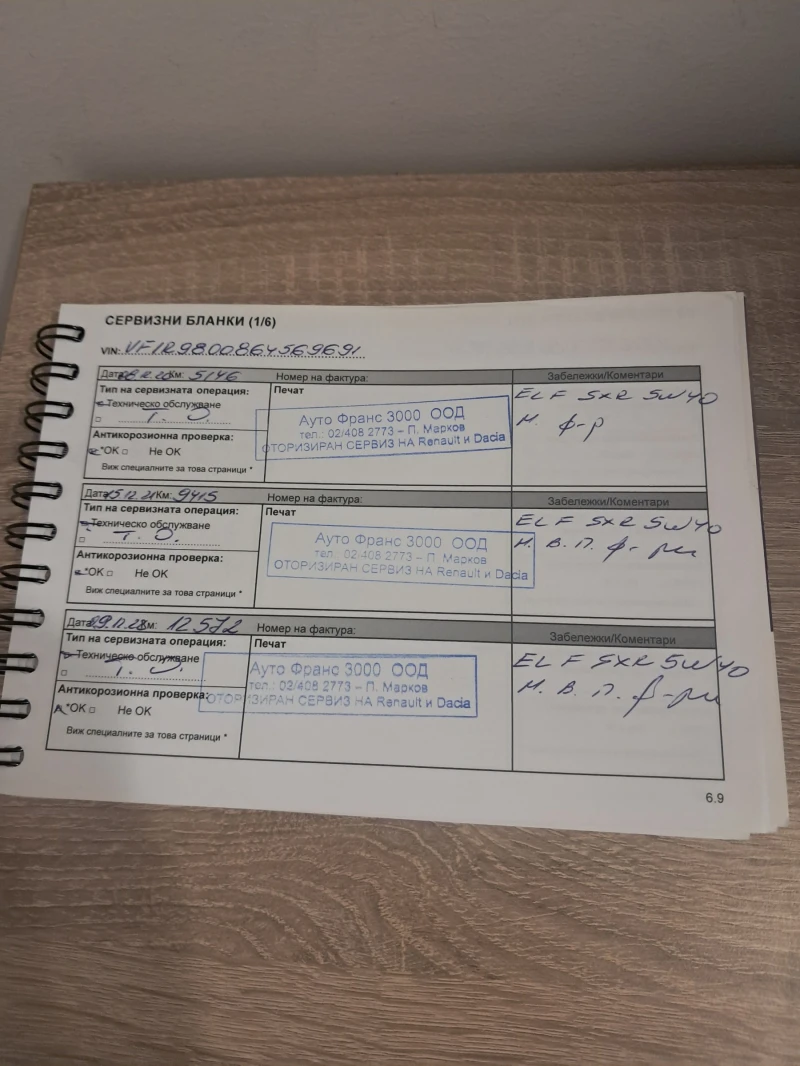 СЕРВИЗНИ БЛАНКИ (1/6)
VIN: VF1R9800864569691
Дата: 08.12.20 Км: 5146 Номер на фактура: Забележки/Коментари
Тип на сервизната операция: Печат ELF SXR 5W40
Техническо обслужване
Т. О. М. ф-р
Ауто Франс 3000 ООД
тел.: 02/408 2773 – П. Марков
ОТОРИЗИРАН СЕРВИЗ НА Renault и Dacia
Антикорозионна проверка:
*OK Не OK
Виж специалните за това страници *
Дата 15.12.21 Км: 9415 Номер на фактура: Забележки/Коментари
Тип на сервизната операция: Печат ELF SXR 5W40
Техническо обслужване М. В. П. ф-ри
Т. О.
Ауто Франс 3000 ООД
тел.: 02/408 2773 – П. Марков
ОТОРИЗИРАН СЕРВИЗ НА Renault и Dacia
Антикорозионна проверка:
*OK Не OK
Виж специалните за това страници *
Дата Км: 12572 Номер на фактура: Забележки/Коментари
Тип на сервизната операция: Печат ELF SXR 5W40
Техническо обслужване М. В. П. ф-ри
Т. О.
Ауто Франс 3000 ООД
тел.: 02/408 2773 – П. Марков
ОТОРИЗИРАН СЕРВИЗ НА Renault и Dacia
Антикорозионна проверка:
*OK Не OK
Виж специалните за това страници *
6.9